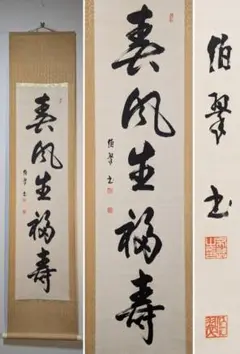 春風生福寿
伯翠書